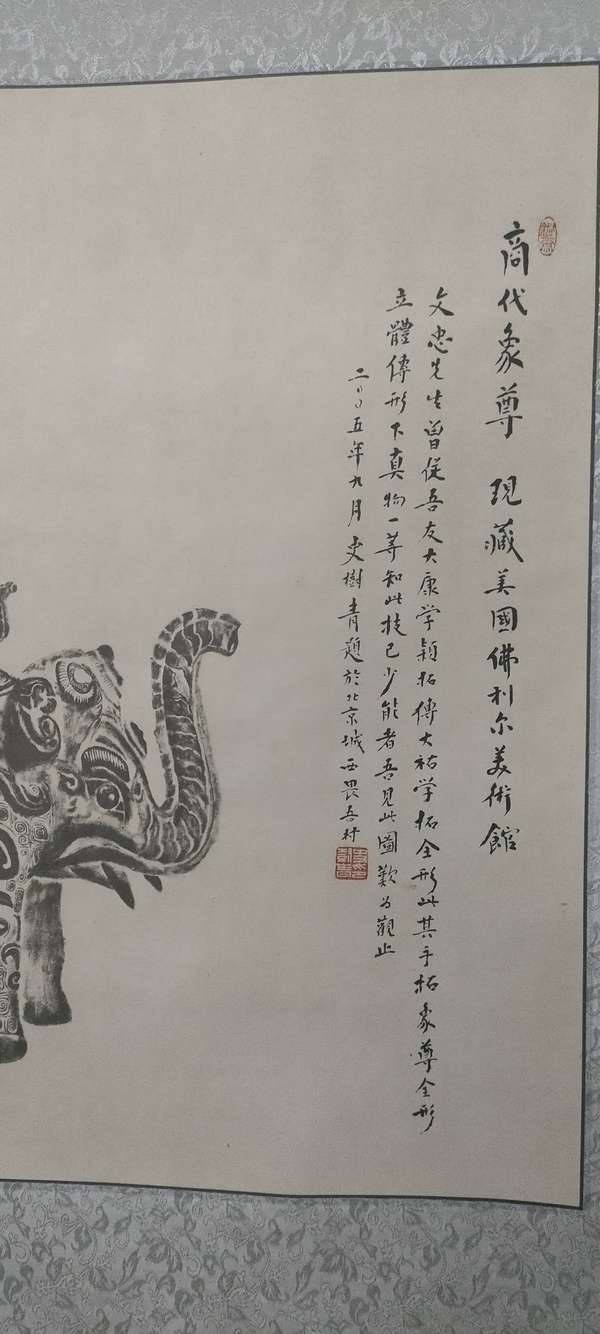 商代象尊 現藏美國佛利尔美術館
文忠先生曾從吾友大康学穎拓傅大祐学拓全形此其手拓象尊全形
立體傳形下真物一等知此技已少能者吾見此圖歎为觀止
二〇〇五年九月史樹青題於北京城西畏吾村